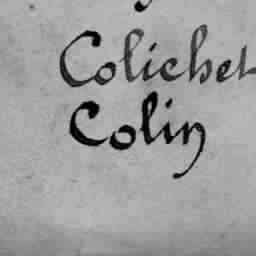 Colichet
Colin